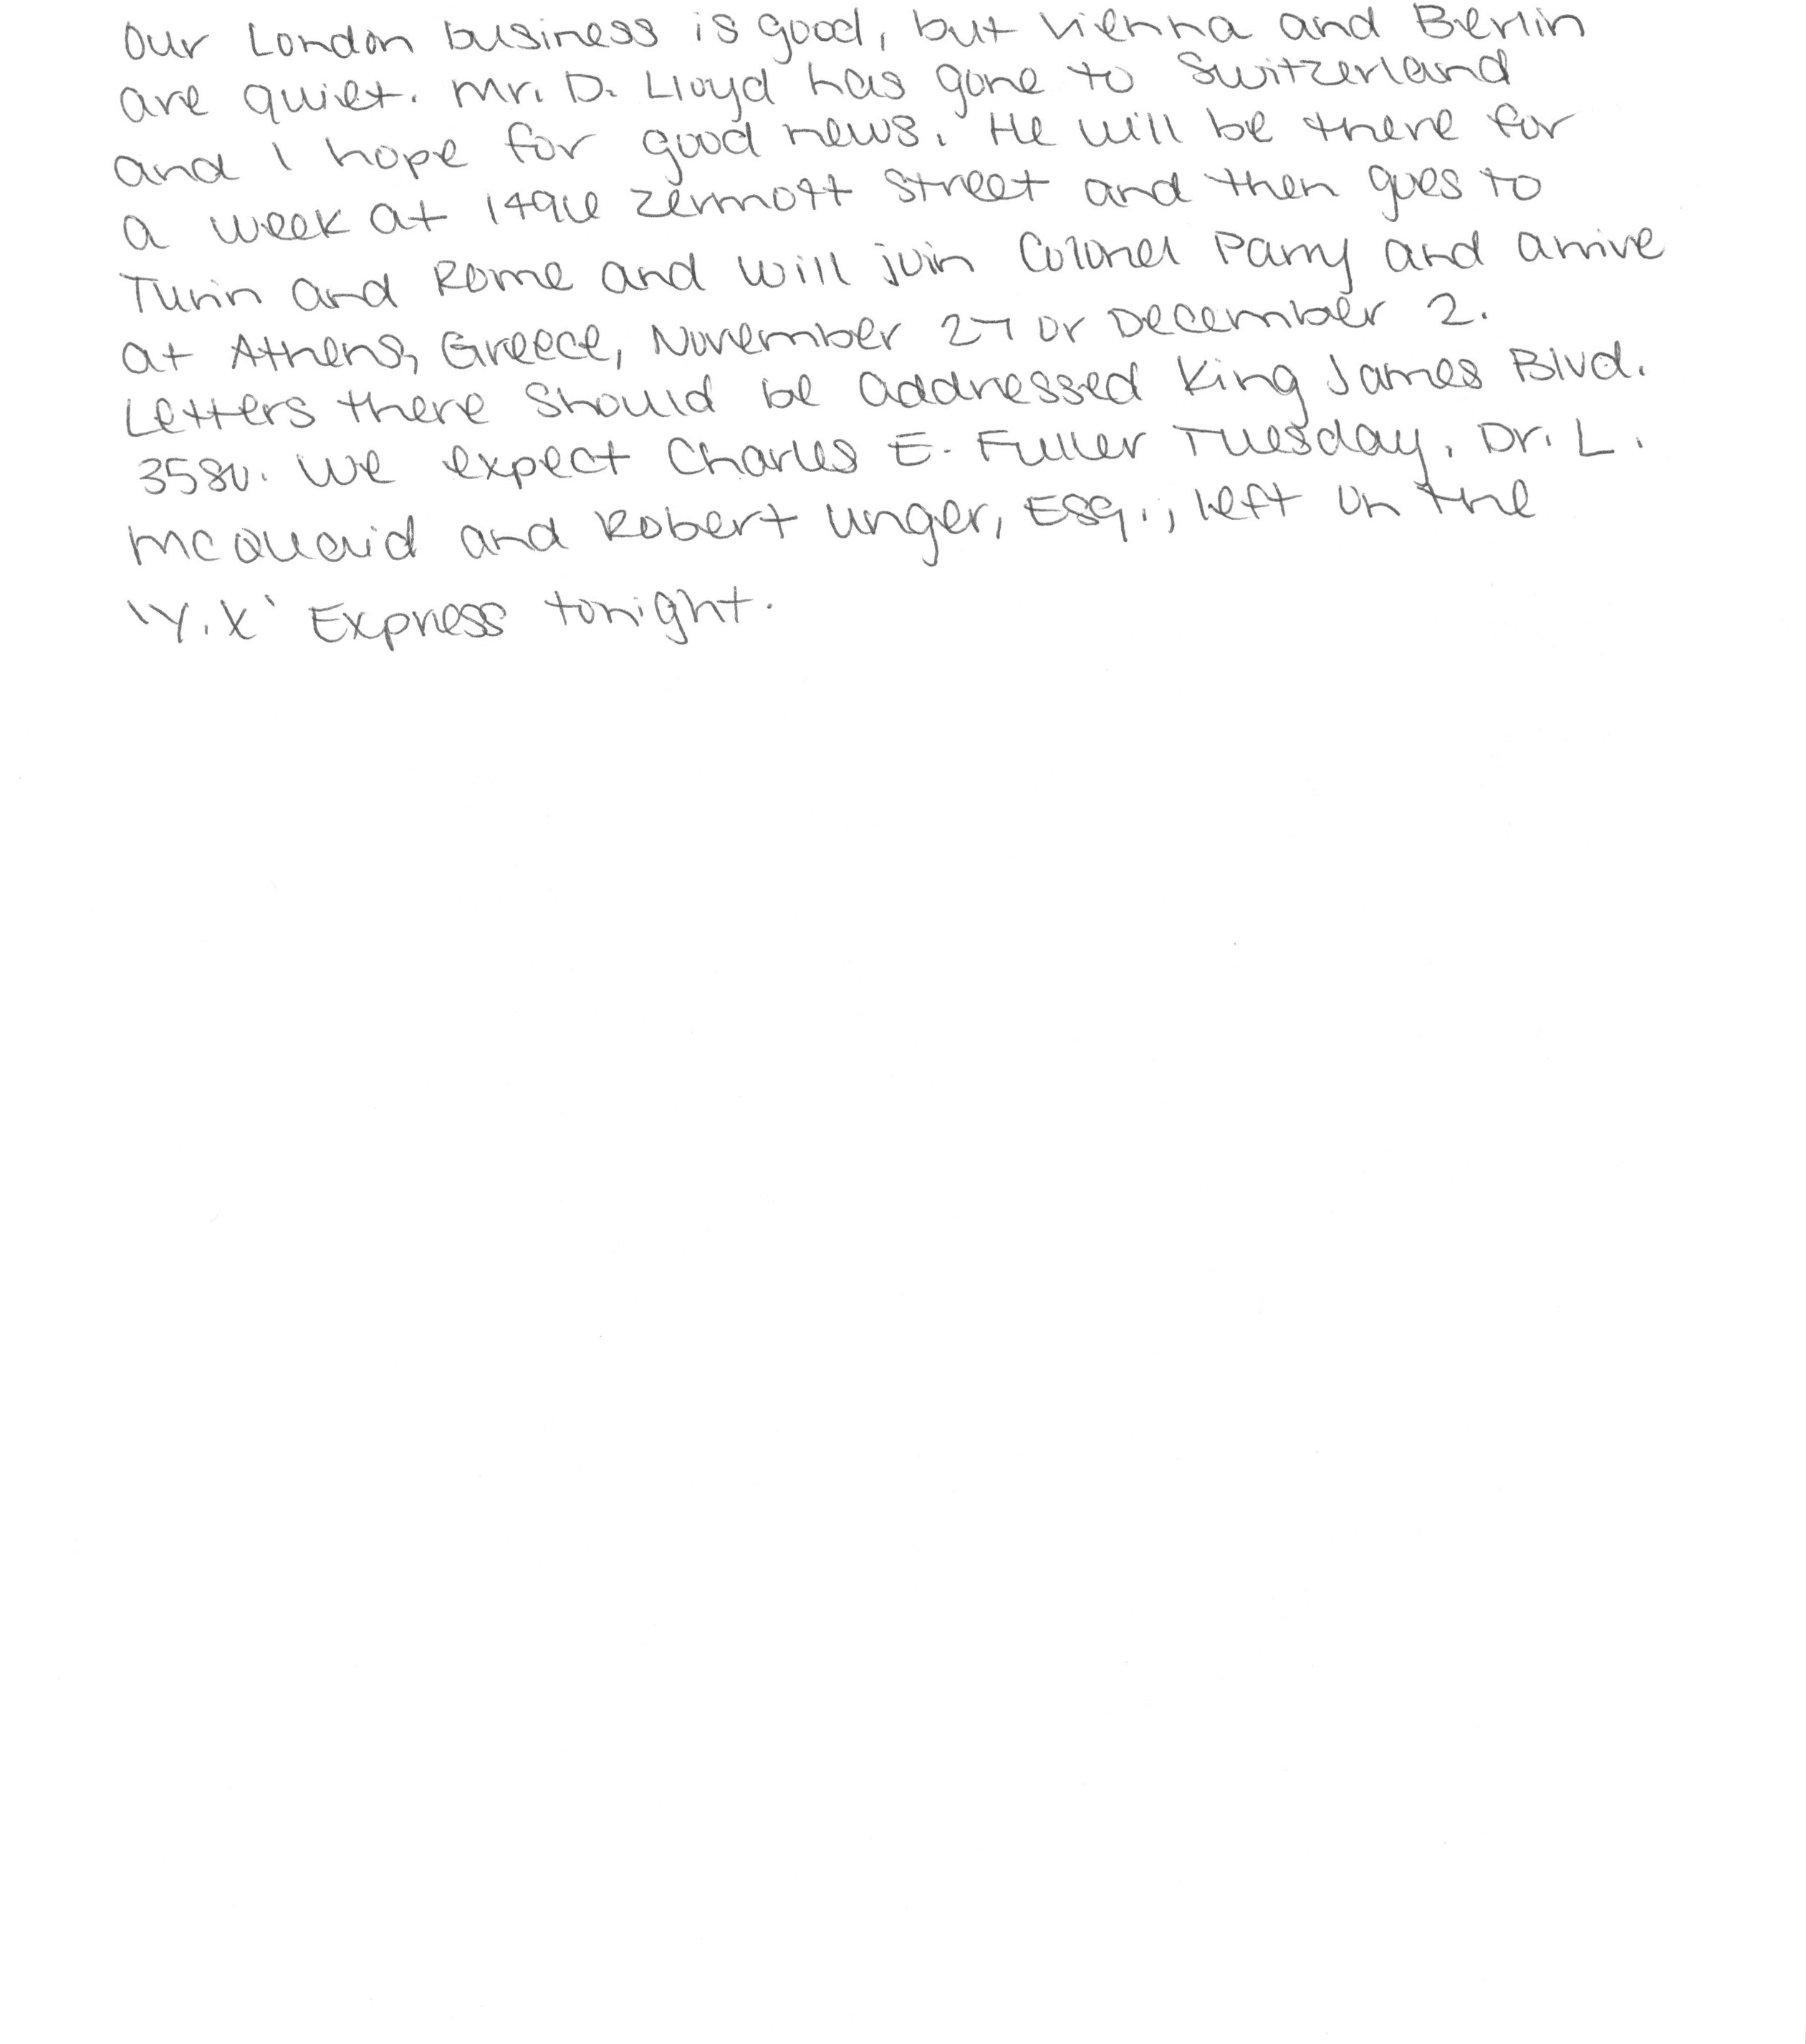 Our London business is good, but Vienna and Berlin
are quiet. Mr. D. Lloyd has gone to Switzerland
and I hope for good news. He will be there for
a week at 1496 Zermott Street and then goes to
Turin and Rome and will join Colonel Parry and arrive
at Athens, Greece, November 27 or December 2.
Letters there should be addressed King James Blvd.
3580. We expect Charles E. Fuller Tuesday. Dr. L.
McQuaid and Robert Unger, Esq., left on the
'Y.X' Express tonight.